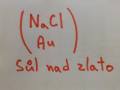 (NaCl
Au)
Sůl nad zlato